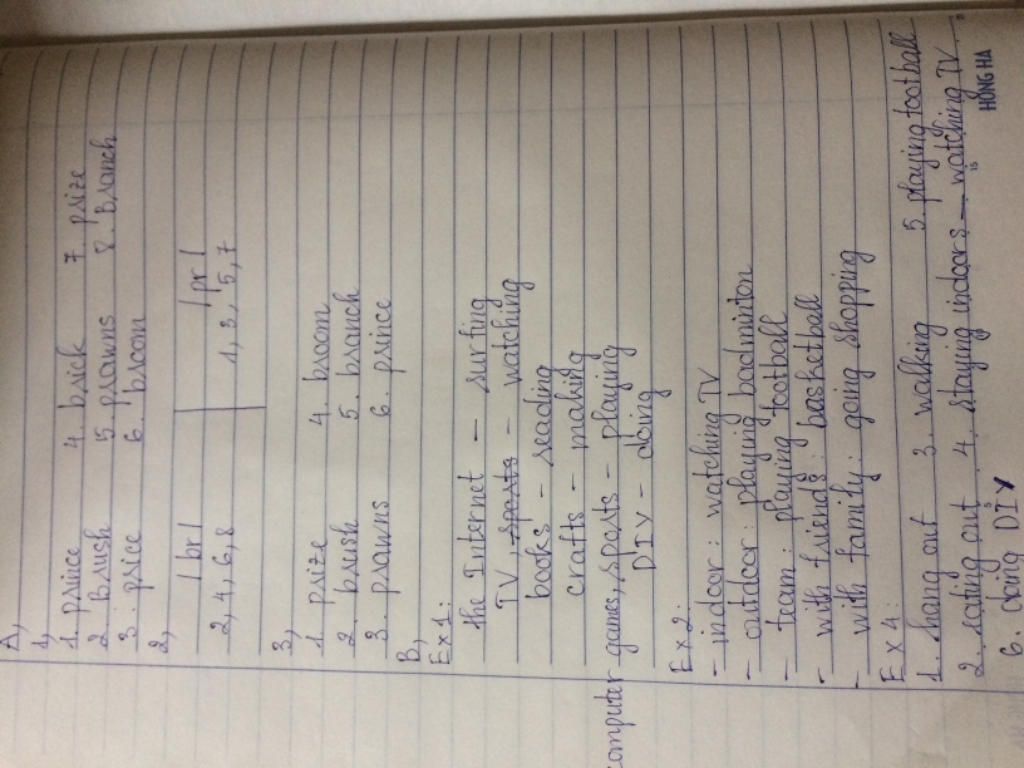 A,
1,
1. prince 4. brick 7. prize
2. Brush 5. prawns 8. branch
3. price 6. broom
2,
/br/ /pr/
2,4,6,8 1,3,5,7
3,
1. prize 4. broom
2. brush 5. branch
3. prawns 6. prince
B,
Ex1:
the Internet - surfing
TV, sports - watching
books - reading
crafts - making
computer games, sports - playing
DIY - doing
Ex 2:
- indoor: watching TV
- outdoor: playing badminton
- team: playing football
- with friends: basketball
- with family: going shopping
Ex 4:
1. hang out 3. walking 5. playing football
2. eating out 4. staying indoors - watching TV.
6. doing DIY
HONG HA